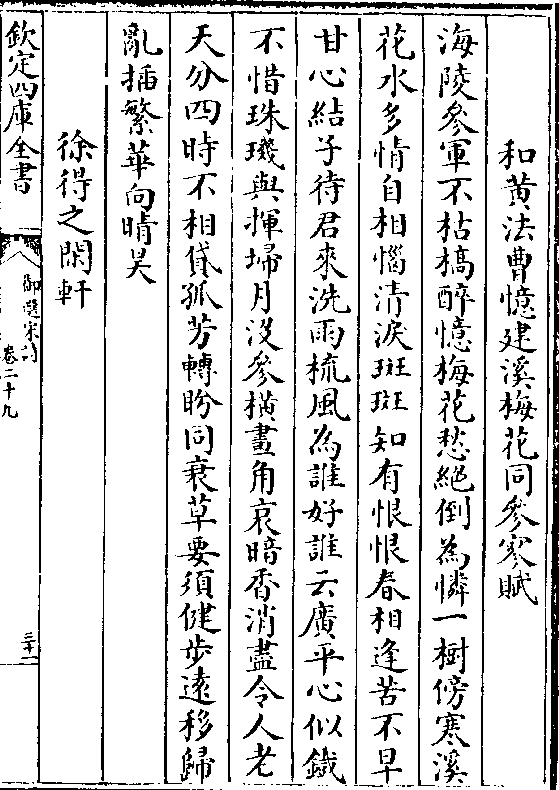 和黄法曹憶建溪梅花同參寥賦
海陵參軍不枯槁醉憶梅花愁絶倒為憐一樹傍寒溪
花水多情自相惱清淚斑斑知有恨恨春相逢苦不早
甘心結子待君來洗雨梳風為誰好誰云廣平心似鐵
不惜珠璣與揮埽月没參橫畫角哀暗香消盡令人老
天分四時不相貸孤芳轉盼同衰草要須健步逺移歸
亂插繁華向晴昊
徐得之閑軒
欽定四庫全書
御選宋詩
卷二十九
三十一